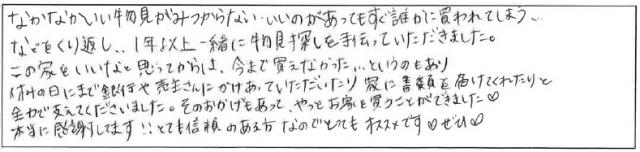 なかなかいい物見がみつからない…いいのがあってもすぐ誰かに買われてしまう…
などをくり返し、、1年以上一緒に物見探しを手伝っていただきました。
この家をいいなと思ってからは、今まで買えなかった…というのもあり
休みの日にまで銀行や売主さんにかけあっていただいたり 家に書類を届けてくれたりと
全力で支えてくださいました。そのおかげもあって、やっとお家を買うことができました♡
本当に感謝してます!! とても信頼のある方なのでとってもオススメです♡ぜひ♡